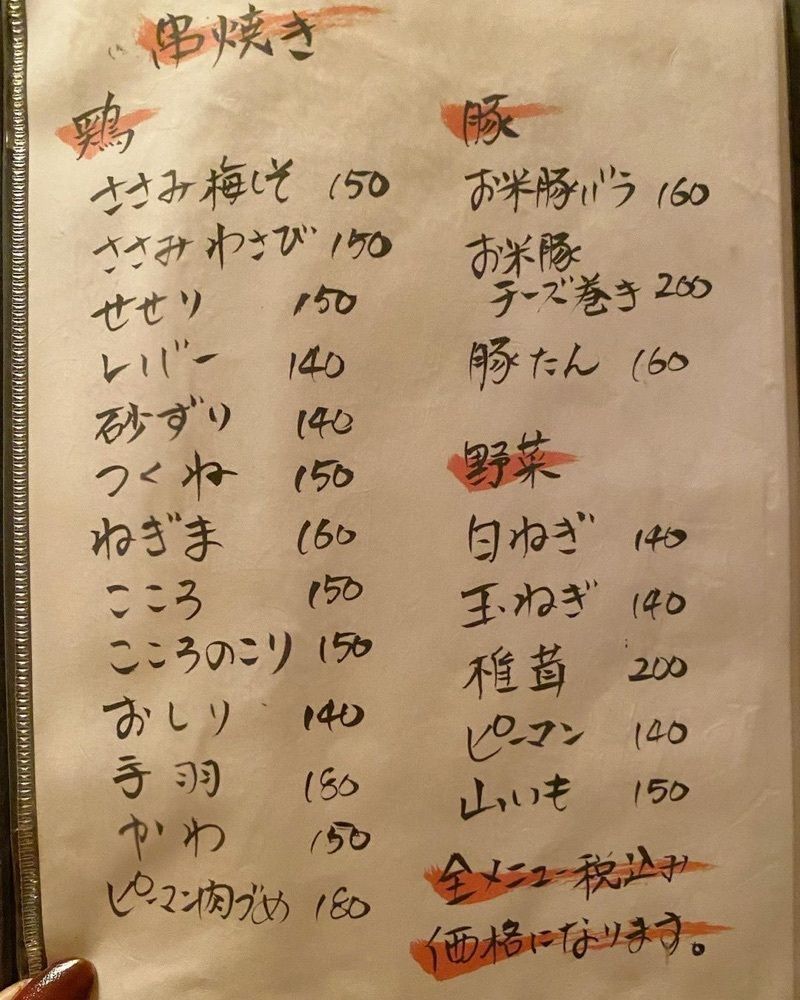 串焼き
鶏
ささみ梅しそ 150
ささみわさび 150
せせり 150
レバー 140
砂ずり 140
つくね 150
ねぎま 160
こころ 150
こころのこり 150
おしり 140
手羽 180
かわ 150
ピーマン肉づめ 180
豚
お米豚バラ 160
お米豚
チーズ巻き 200
豚たん 160
野菜
白ねぎ 140
玉ねぎ 140
椎茸 200
ピーマン 140
山いも 150
全メニュー税込み
価格になります。